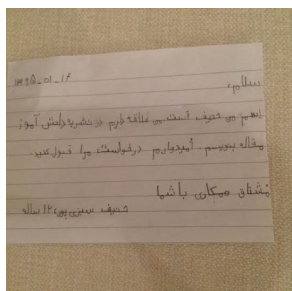 ۱۳۹۵_۰۱_۱۶
سلام،
اسم من حنیف است من علاقه دارم در نشریه دانش آموز
مقاله بنویسم. امیدوارم درخواست مرا قبول کنید.
مشتاق همکاری با شما
حنیف ۱۲ ساله